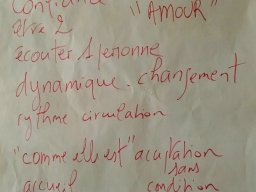 confiance "AMOUR"
être 2
écouter 1 personne
dynamique. changement
rythme circulation
"comme elle est" acceptation
sans
accueil condition